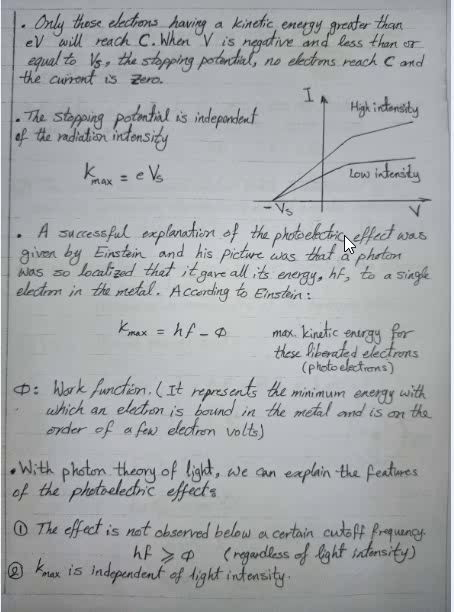 • Only those electrons having a kinetic energy greater than
eV will reach C. When V is negative and less than or
equal to Vs, the stopping potential, no electrons reach C and
the current is zero.
I
High intensity
• The stopping potential is independent
of the radiation intensity
Kmax = e Vs
Low intensity
-Vs
V
• A successful explanation of the photoelectric effect was
given by Einstein and his picture was that a photon
was so localized that it gave all its energy, hf, to a single
electron in the metal. According to Einstein:
Kmax = hf - Φ
max. kinetic energy for
these liberated electrons
(photoelectrons)
Φ: Work function. (It represents the minimum energy with
which an electron is bound in the metal and is on the
order of a few electron volts)
• With photon theory of light, we can explain the features
of the photoelectric effect:
① The effect is not observed below a certain cutoff frequency.
hf ⩾ Φ (regardless of light intensity)
② Kmax is independent of light intensity.